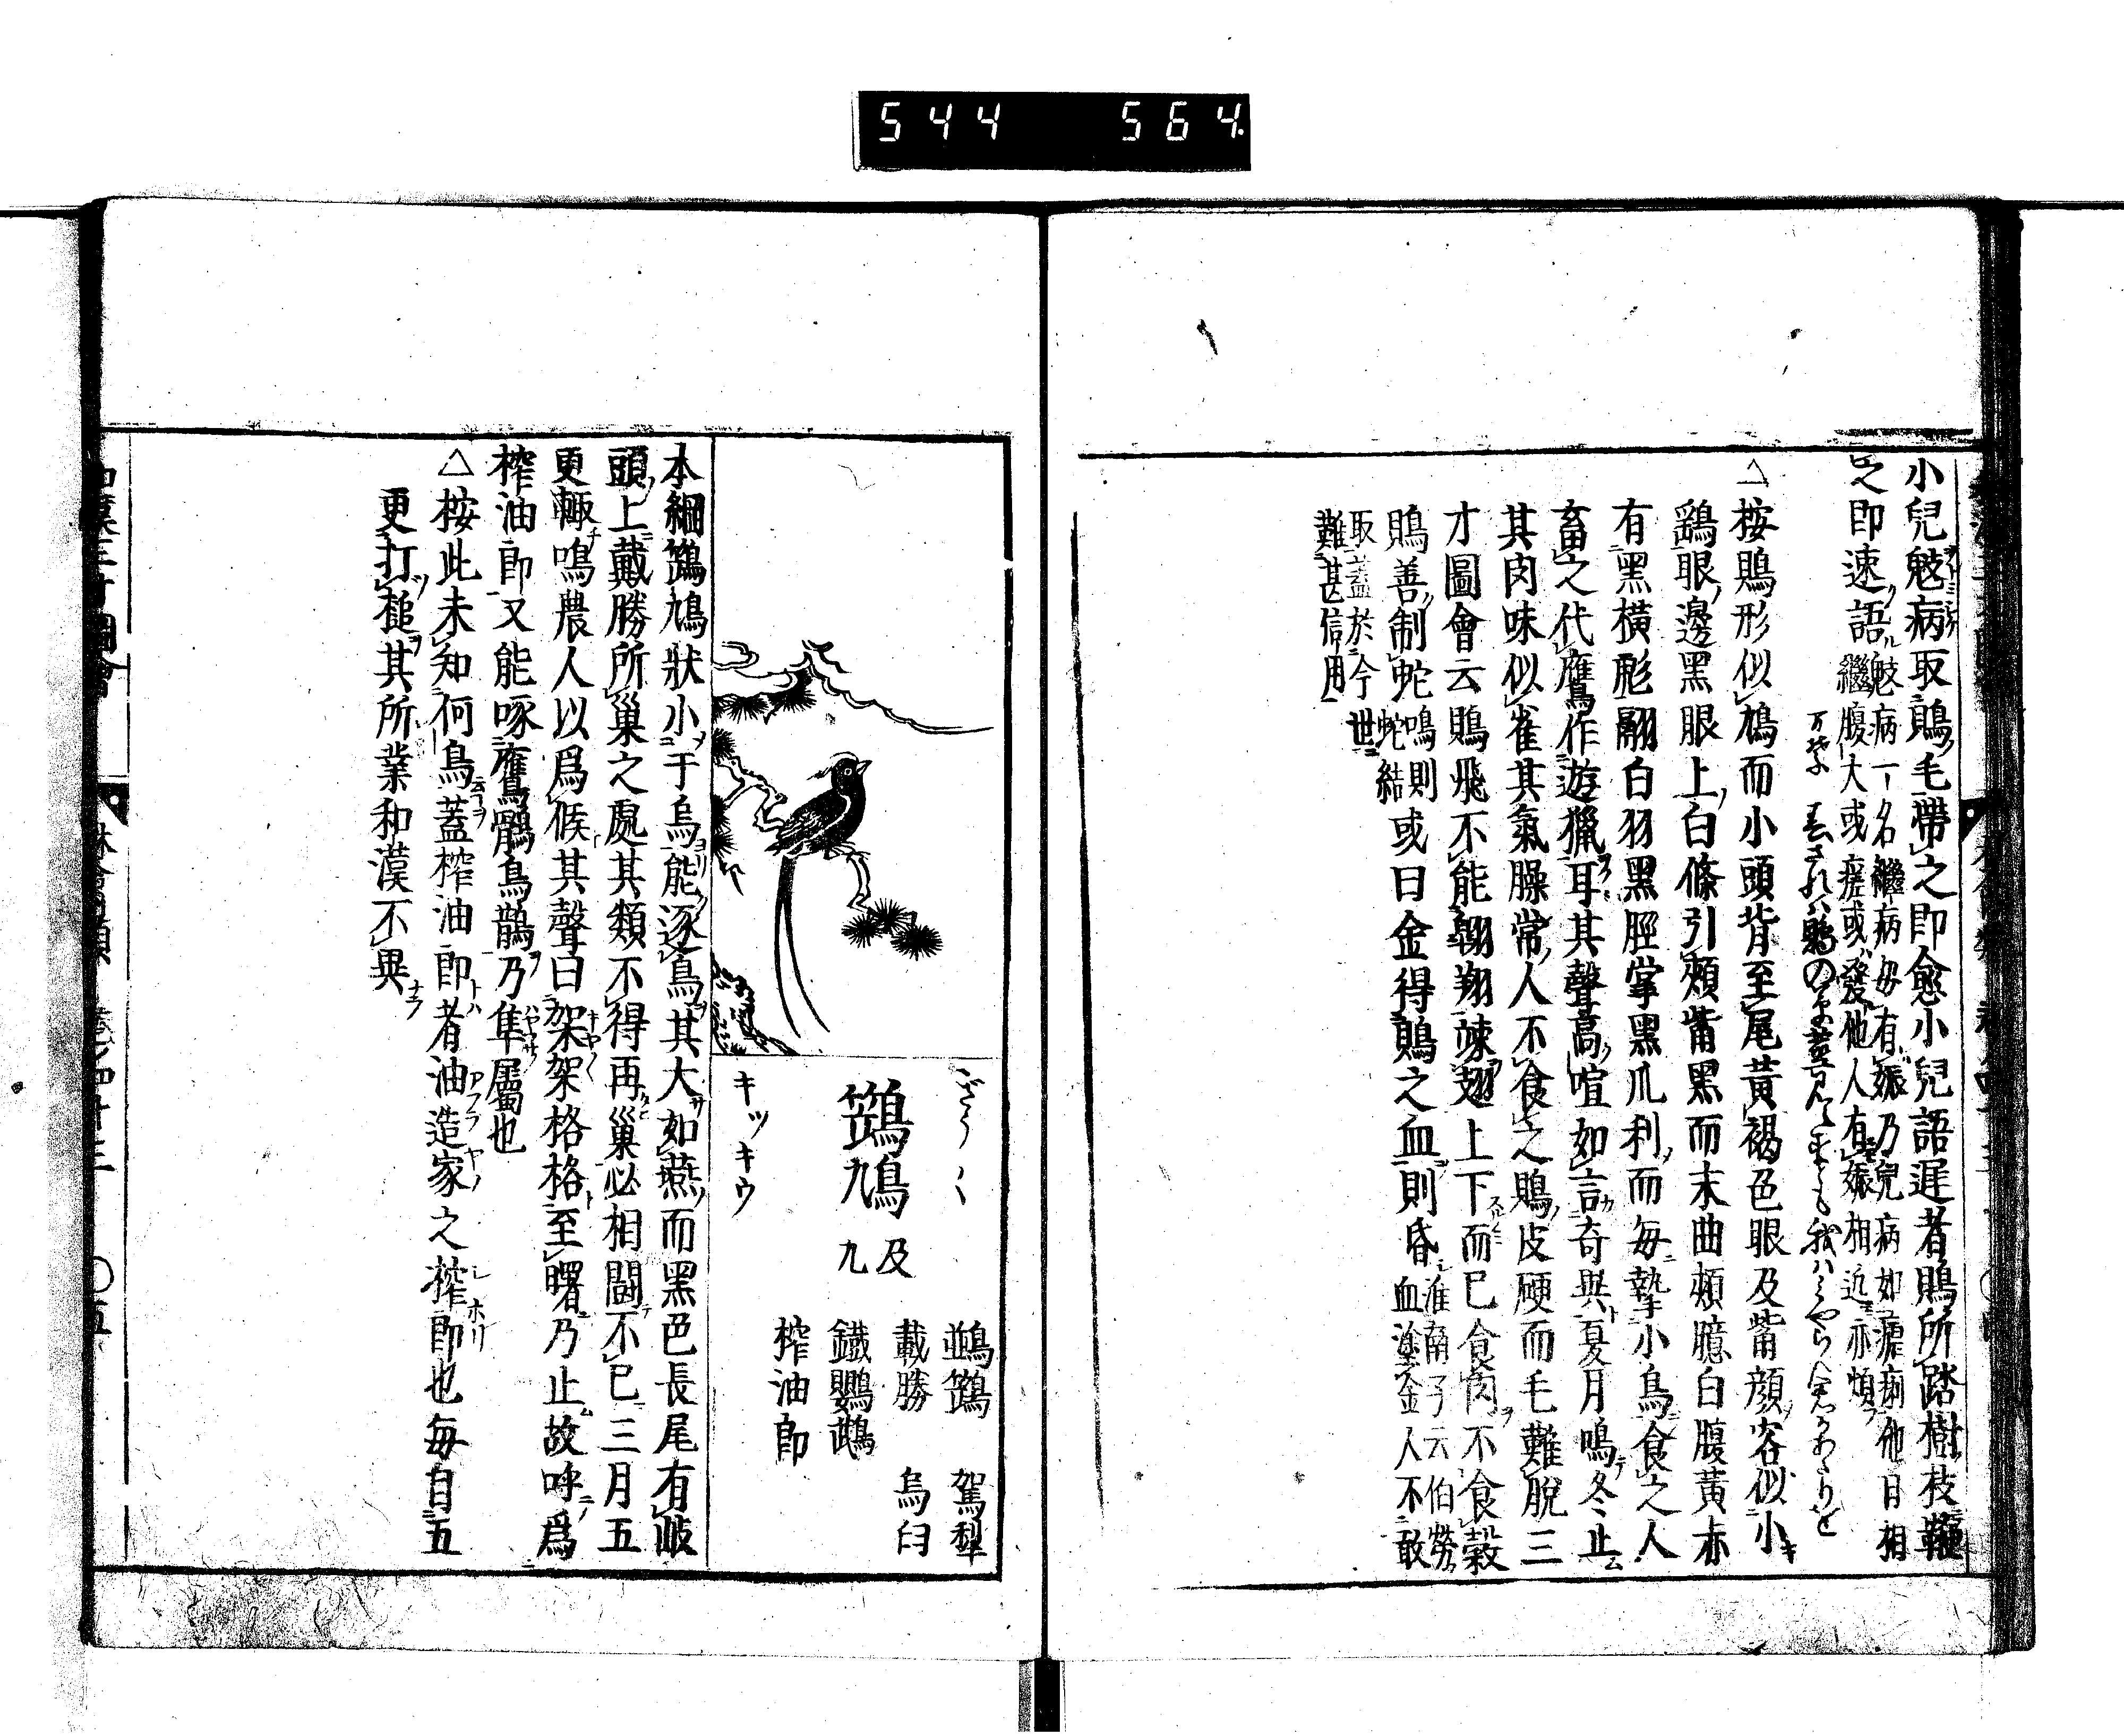 544 564
小兒鬾病取鵙毛帶之即愈小兒語遲者鵙所踏樹枝鞭
之即速語
鬾病一名繼病毎有娠乃兒病如瘧痢他日相
繼腹大或瘥或發他人有娠相近亦相
△按鵙形似鳩而小頭背至尾黃褐色眼及觜顔容似小
鷂眼邊黑眼上白條引頰觜黑而末曲頰臆白腹黃赤
有黑橫彪翮白羽黑脛掌黑爪利而每摯小鳥食之人
畜之代鷹作遊獵耳其聲高喧如言奇異夏月鳴冬止
其肉味似雀其氣臊常人不食之鵙皮硬而毛難脫三
才圖會云鵙飛不能翺翔竦翅上下而已食肉不食穀
鵙善制蛇鳴則蛇結或曰金得鵙之血則昏淮南子云伯勞血塗金人不敢
取蓋於今世
難甚信用
鵊鳩
及九
ござう〱
キツキウ
鴉鵊 駕犁
戴勝 烏臼
鐵鸚鵡
榨油郎
本綱鵊鳩狀小于烏能逐烏其大如燕而黑色長尾有岐
頭上戴勝所巢之處其類不得再巢必相鬪不已三月五
更輙鳴農人以爲候其聲曰架架格格至曙乃止故呼爲
榨油郎又能啄鷹鶻烏鵲乃隼屬也
△按此未知何鳥蓋榨油郎者油造家之榨郎也每自五
更打槌其所業和漢不異
和漢三才圖會 林禽類 卷之四十三 ○五